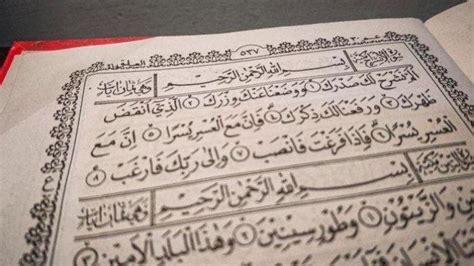 ٥٣٧
بِسْمِ اللّٰهِ الرَّحْمٰنِ الرَّحِيْمِ وَهِيَ ثَمَانُ اٰيَاتٍ
اَلَمْ نَشْرَحْ لَكَ صَدْرَكَ ١ وَوَضَعْنَا عَنْكَ وِزْرَكَ ٢ الَّذِيْٓ اَنْقَضَ
ظَهْرَكَ ٣ وَرَفَعْنَا لَكَ ذِكْرَكَ ٤ فَاِنَّ مَعَ الْعُسْرِ يُسْرًا ٥ اِنَّ مَعَ
الْعُسْرِ يُسْرًا ٦ فَاِذَا فَرَغْتَ فَانْصَبْ ٧ وَاِلٰى رَبِّكَ فَارْغَبْ ٨
بِسْمِ اللّٰهِ الرَّحْمٰنِ الرَّحِيْمِ وَهِيَ ثَمَانُ اٰيَاتٍ
وَالزَّيْتُوْنِ ١ وَطُوْرِ سِيْنِيْنَ ٢ وَهٰذَا الْبَلَدِ الْاَمِيْنِ ٣